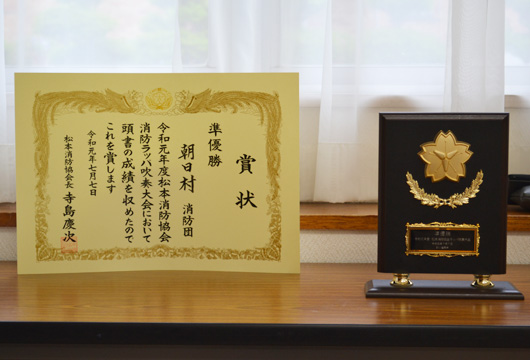 賞状
準優勝
朝日村 消防団
令和元年度松本消防協会
消防ラッパ吹奏大会において
頭書の成績を収めたので
これを賞します
令和元年七月七日
松本消防協会長 寺島慶次
準優勝